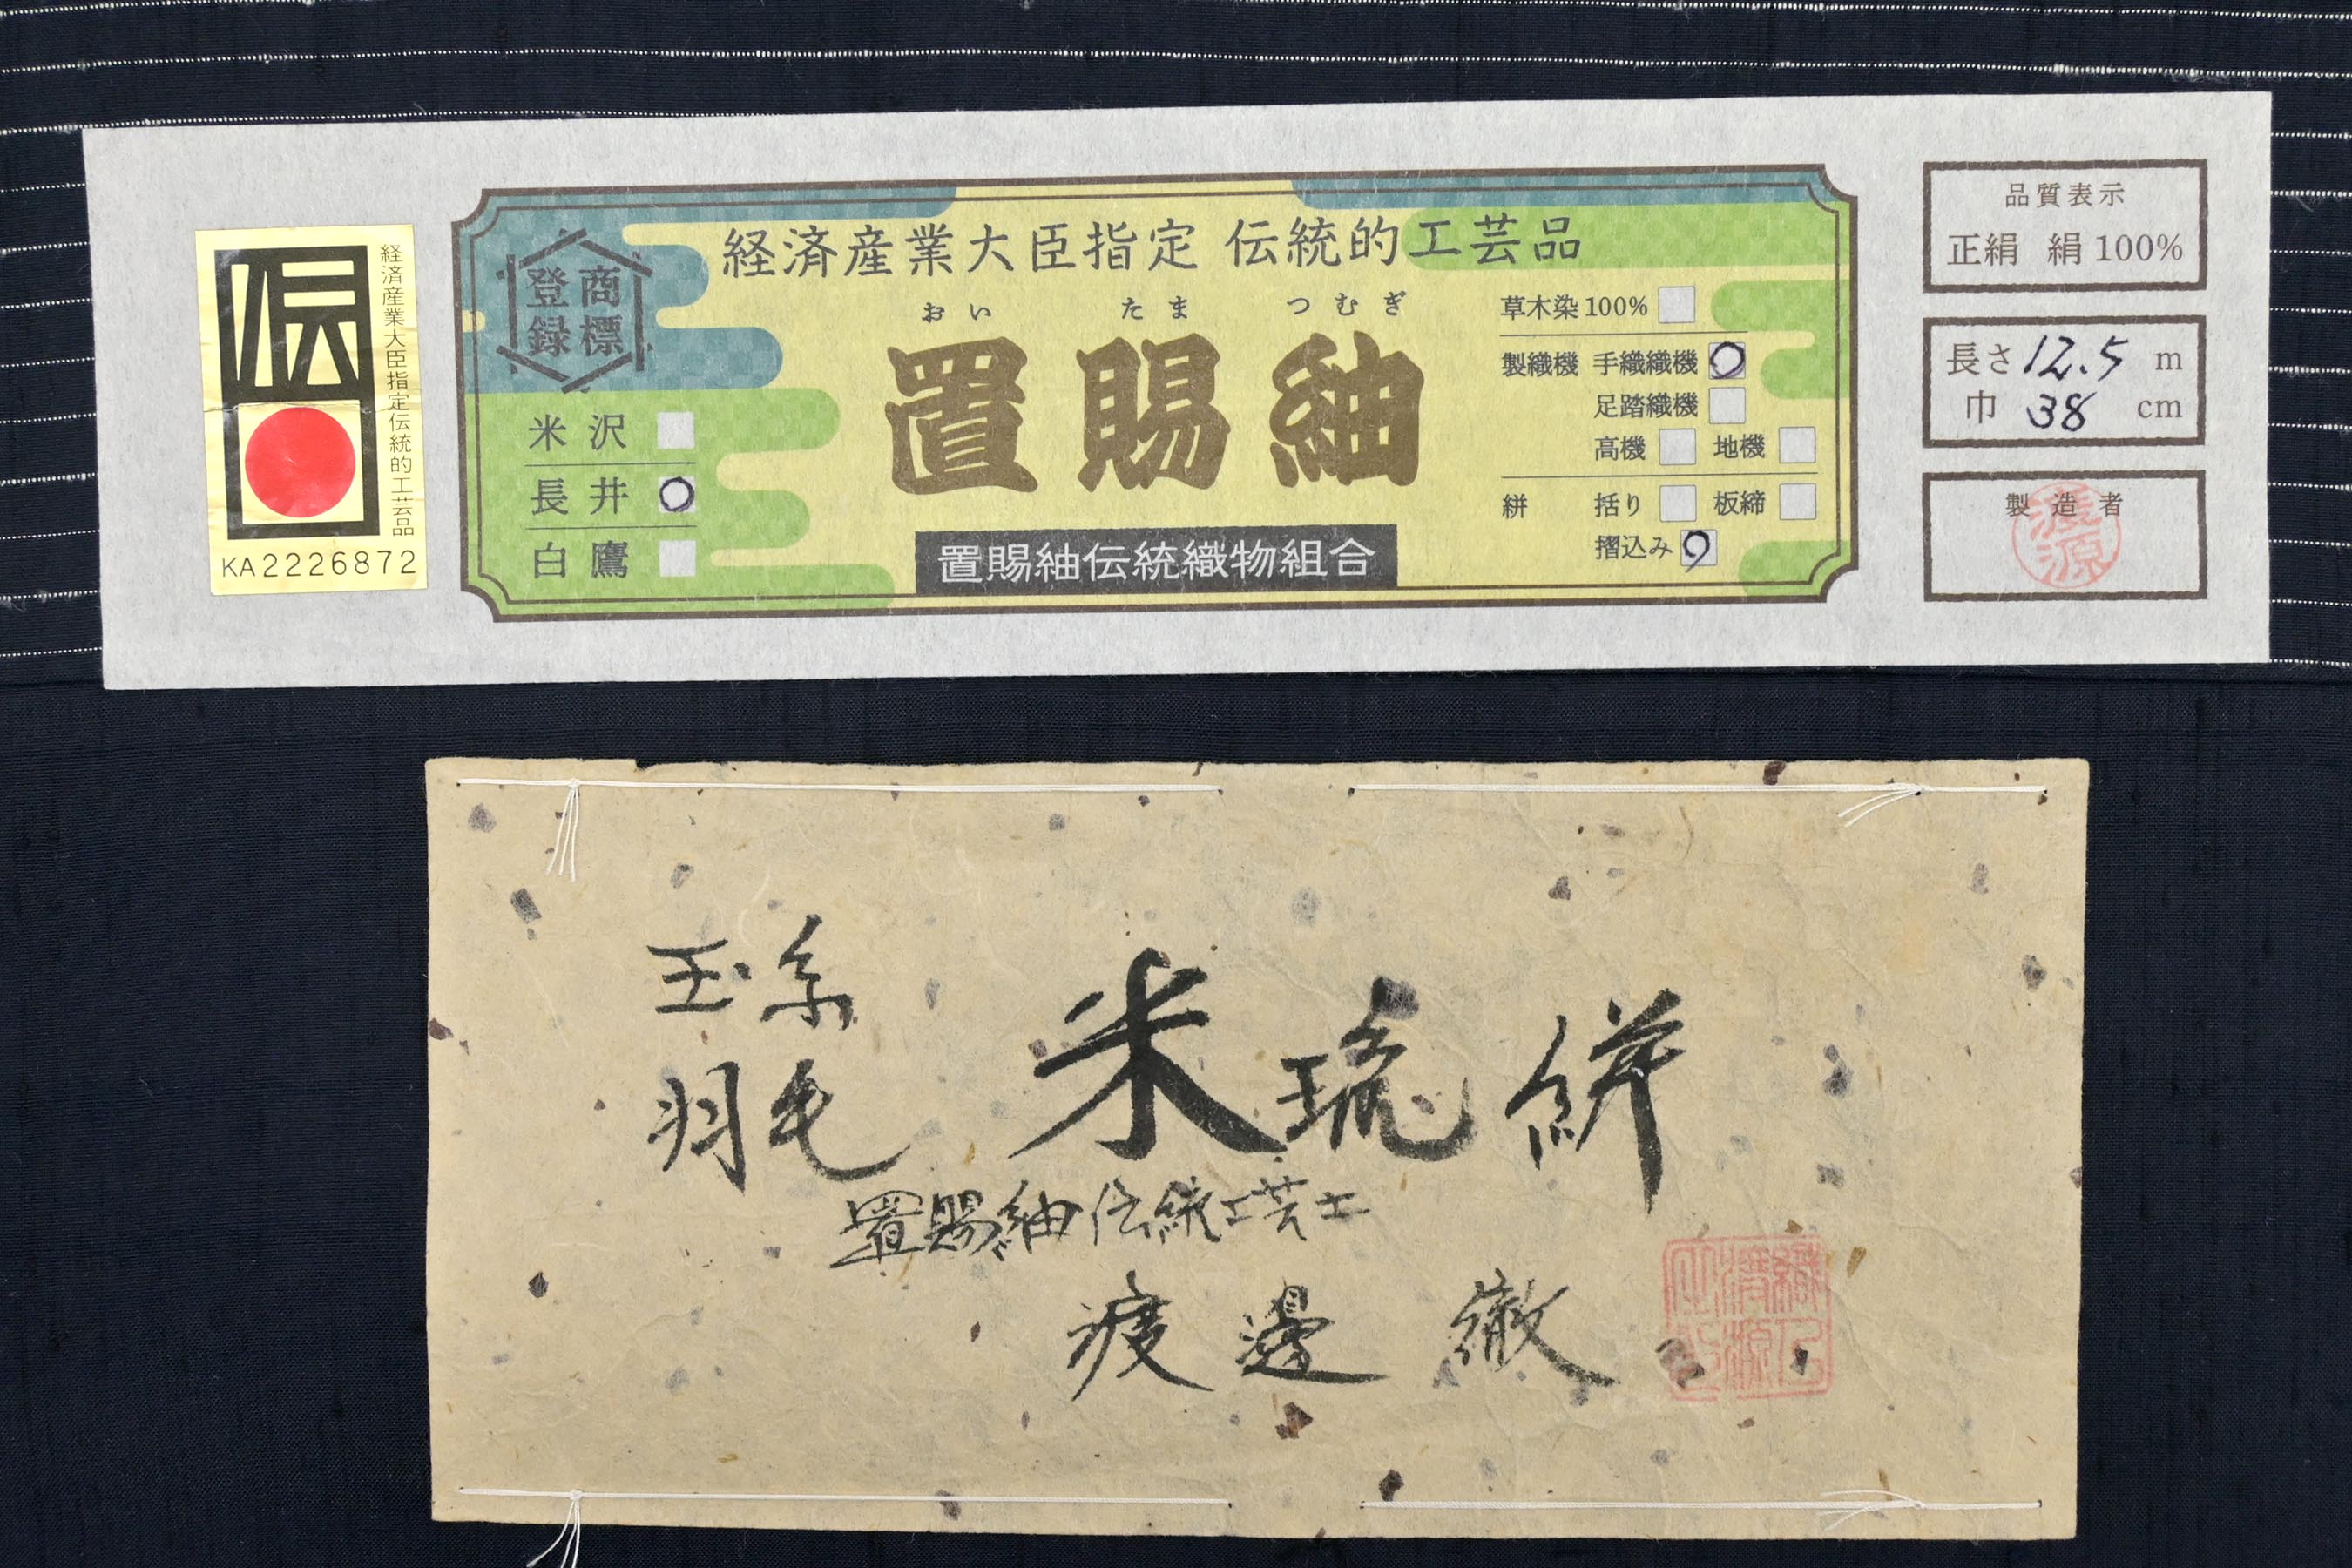 経済産業大臣指定伝統的工芸品
伝
KA2226872
商標
登録
米沢
長井 ○
白鷹
経済産業大臣指定 伝統的工芸品
おい たま つむぎ
置賜紬
置賜紬伝統織物組合
草木染100%
製織機 手織織機 ○
足踏織機
高機 地機
絣 括り 板締
摺込み ○
品質表示
正絹 絹100%
長さ 12.5 m
巾 38 cm
製造者
渡源
玉糸
羽毛
米琉絣
置賜紬伝統工芸士
渡邊 徹